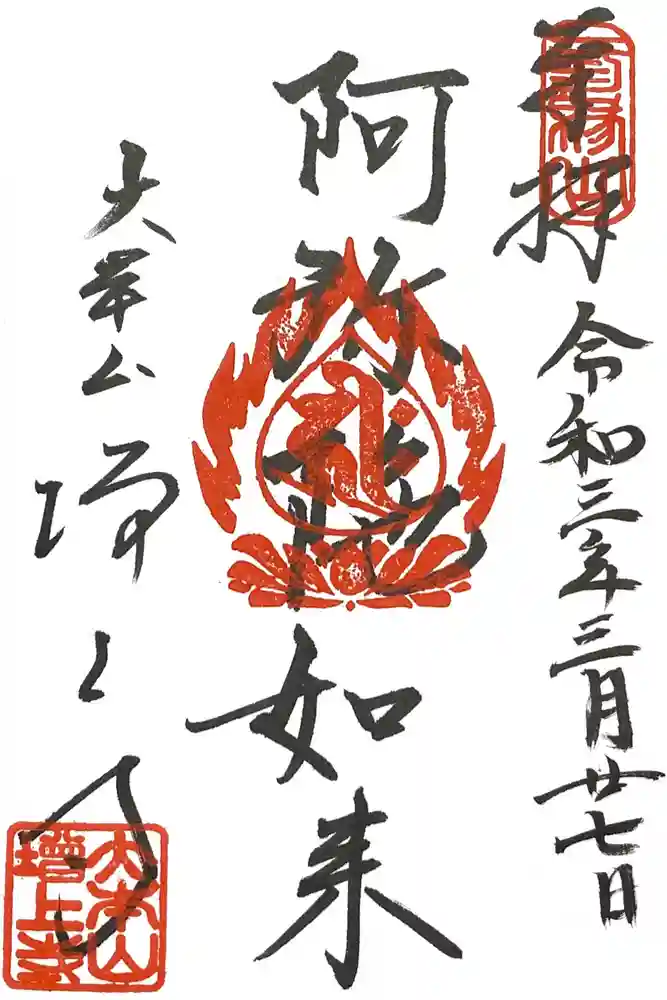 奉拝
令和三年三月廿七日
阿弥陀如来
大本山
増上寺
大本山
増上寺